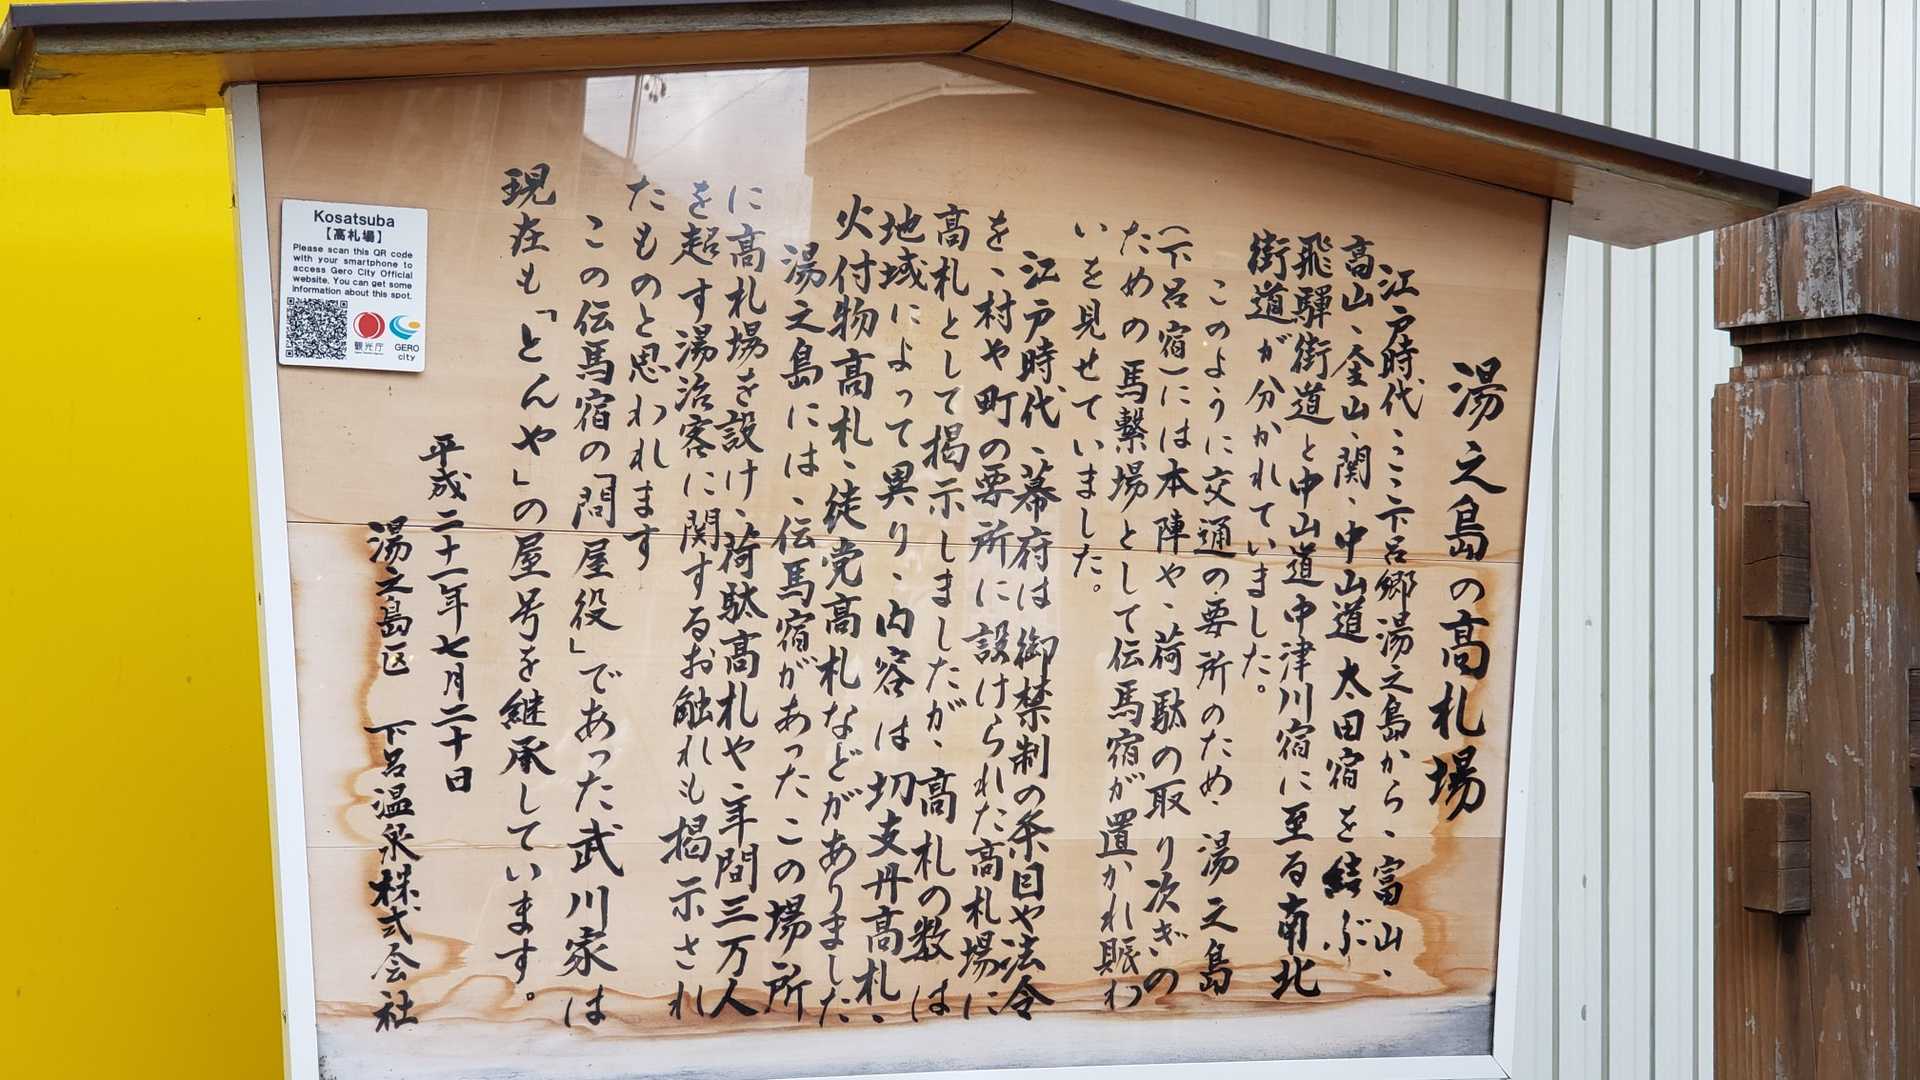 湯之島の高札場
江戸時代、ここ下呂郷湯之島から、富山、
高山、金山、関、中山道太田宿を結ぶ
飛騨街道と中山道中津川宿に至る南北
街道が分かれていました。
このように交通の要所のため、湯之島
(下呂宿)には本陣や、荷駄の取り次ぎの
ための馬繋場として伝馬宿が置かれ賑わ
いを見せていました。
江戸時代、幕府は御禁制の条目や法令
を、村や町の要所に設けられた高札場に
高札として掲示しましたが、高札の数は
地域によって異り、内容は切支丹高札、
火付物高札、徒党高札などがありました
湯之島には、伝馬宿があったこの場所
に高札場を設け、荷駄高札や、年間三万人
を超す湯治客に関するお触れも掲示され
たものと思われます
この伝馬宿の「問屋役」であった武川家は
現在も「とんや」の屋号を継承しています。
平成二十一年七月二十日
湯之島区 下呂温泉株式会社
Kosatsuba
【高札場】
Please scan this QR code
with your smartphone to
access Gero City Official
website. You can get some
information about this spot.
観光庁
GERO
city